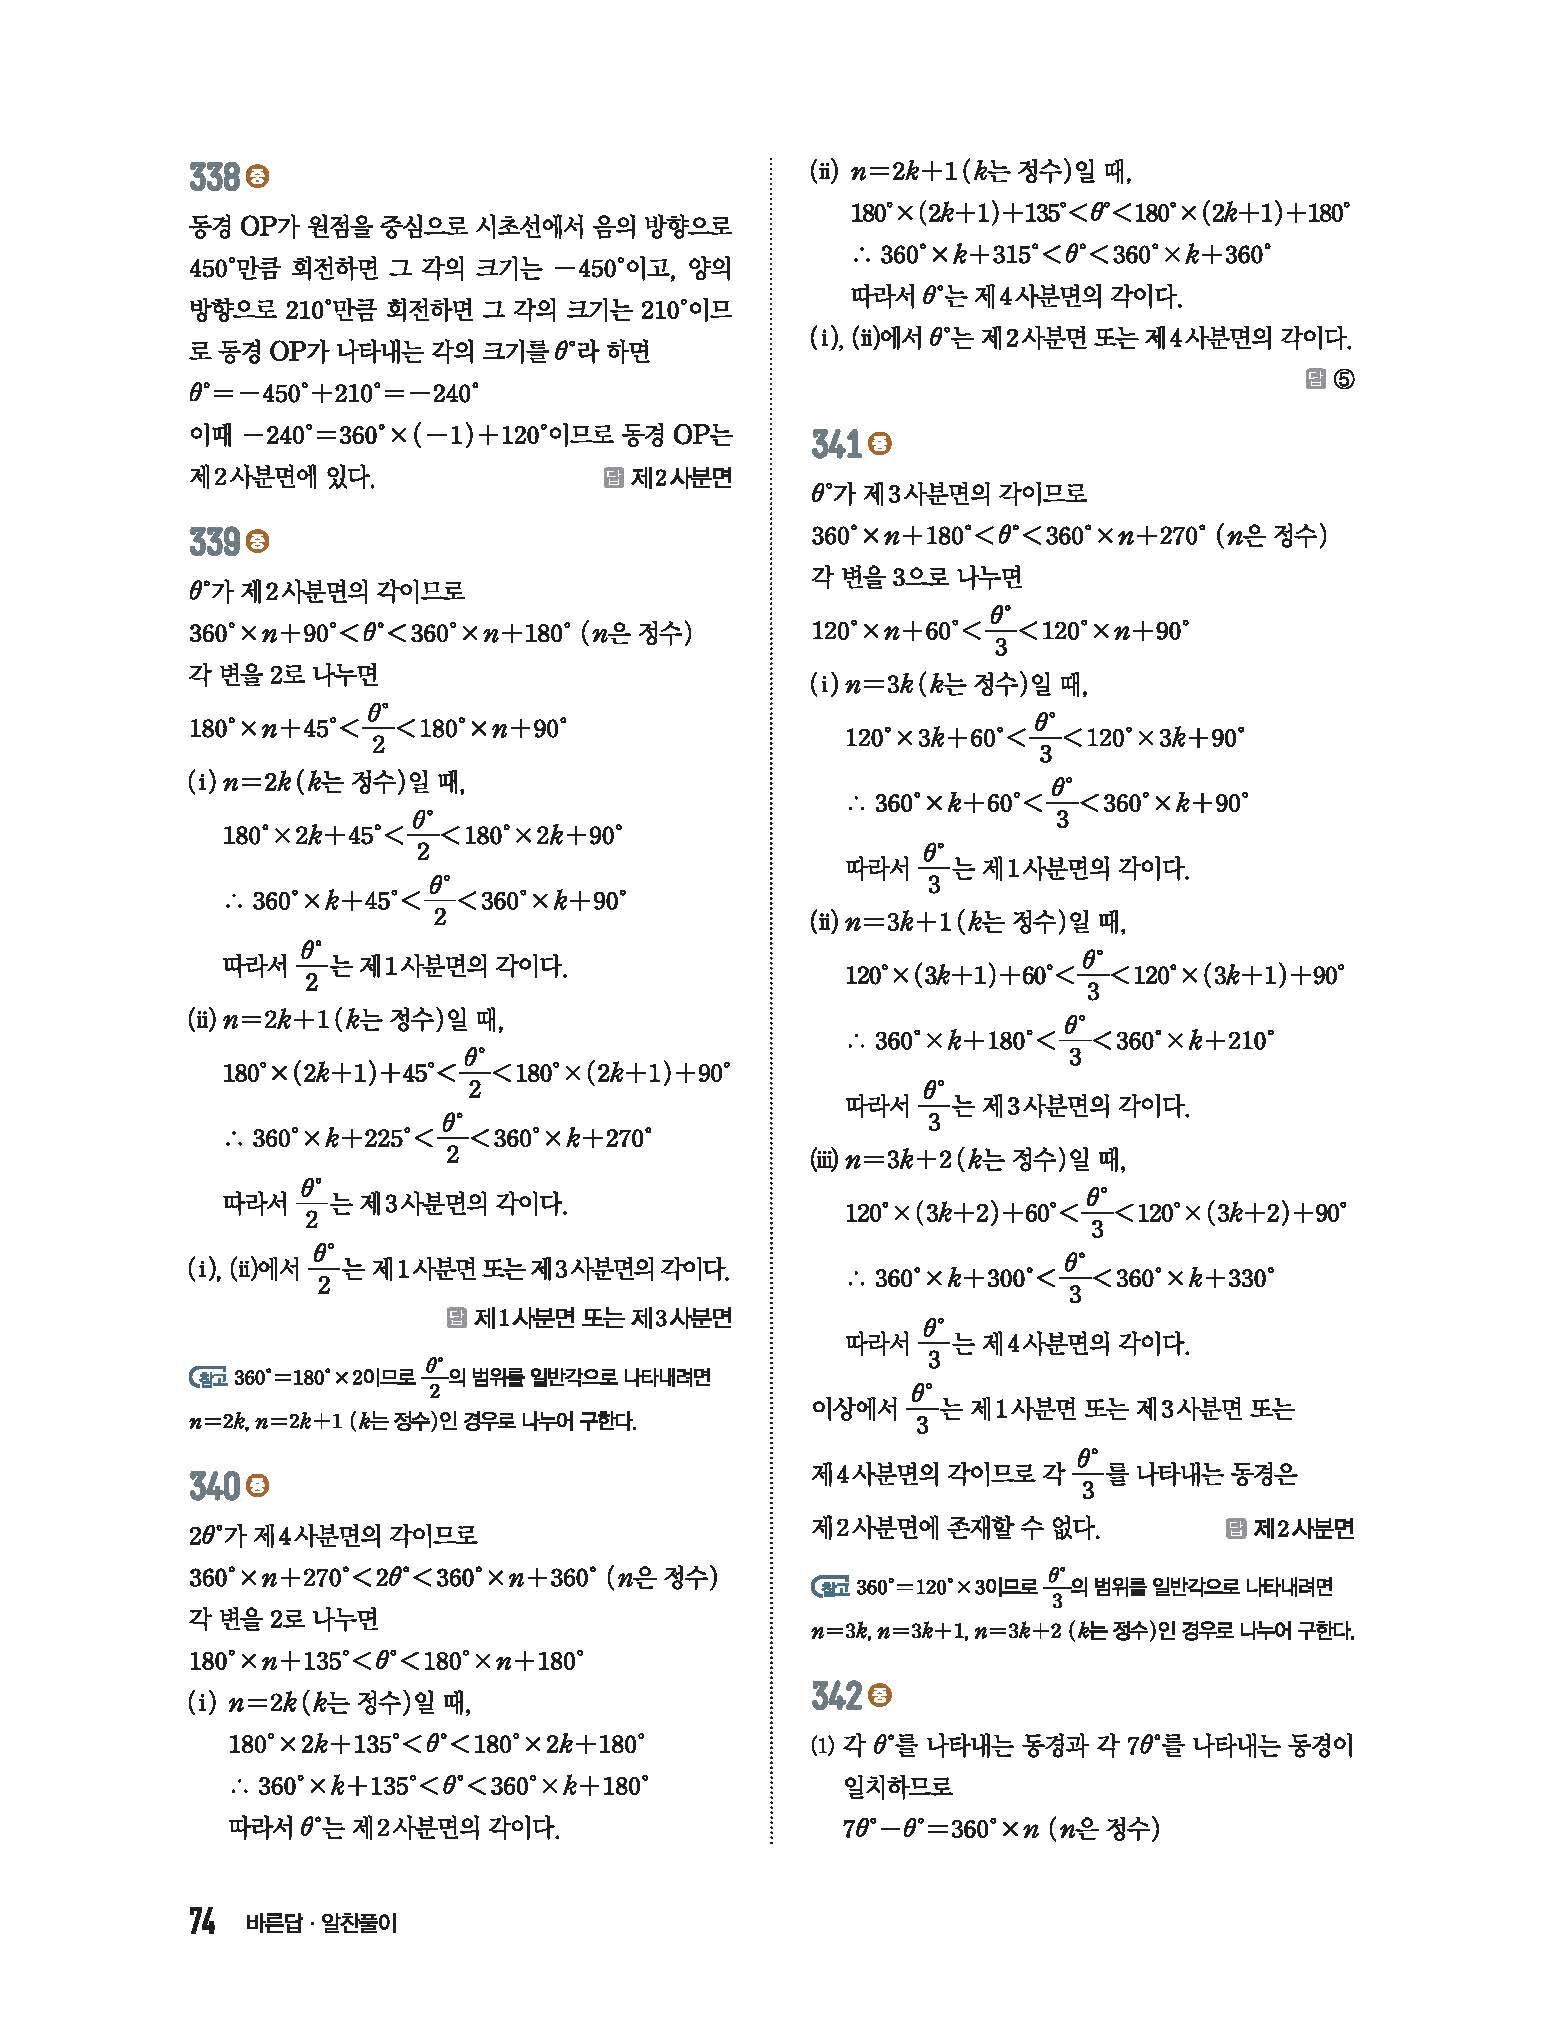 338 중
동경 OP가 원점을 중심으로 시초선에서 음의 방향으로
450°만큼 회전하면 그 각의 크기는 -450°이고, 양의
방향으로 210°만큼 회전하면 그 각의 크기는 210°이므
로 동경 OP가 나타내는 각의 크기를 θ°라 하면
θ°=-450°+210°=-240°
이때 -240°=360°×(-1)+120°이므로 동경 OP는
제2사분면에 있다. 답 제2사분면
339 중
θ°가 제2사분면의 각이므로
360°×n+90°<θ°<360°×n+180° (n은 정수)
각 변을 2로 나누면
180°×n+45°<θ°/2<180°×n+90°
(ⅰ) n=2k(k는 정수)일 때,
180°×2k+45°<θ°/2<180°×2k+90°
∴ 360°×k+45°<θ°/2<360°×k+90°
따라서 θ°/2는 제1사분면의 각이다.
(ⅱ) n=2k+1(k는 정수)일 때,
180°×(2k+1)+45°<θ°/2<180°×(2k+1)+90°
∴ 360°×k+225°<θ°/2<360°×k+270°
따라서 θ°/2는 제3사분면의 각이다.
(ⅰ), (ⅱ)에서 θ°/2는 제1사분면 또는 제3사분면의 각이다.
답 제1사분면 또는 제3사분면
참고 360°=180°×2이므로 θ°/2의 범위를 일반각으로 나타내려면
n=2k, n=2k+1 (k는 정수)인 경우로 나누어 구한다.
340 중
2θ°가 제4사분면의 각이므로
360°×n+270°<2θ°<360°×n+360° (n은 정수)
각 변을 2로 나누면
180°×n+135°<θ°<180°×n+180°
(ⅰ) n=2k(k는 정수)일 때,
180°×2k+135°<θ°<180°×2k+180°
∴ 360°×k+135°<θ°<360°×k+180°
따라서 θ°는 제2사분면의 각이다.
(ⅱ) n=2k+1(k는 정수)일 때,
180°×(2k+1)+135°<θ°<180°×(2k+1)+180°
∴ 360°×k+315°<θ°<360°×k+360°
따라서 θ°는 제4사분면의 각이다.
(ⅰ), (ⅱ)에서 θ°는 제2사분면 또는 제4사분면의 각이다.
답 ⑤
341 중
θ°가 제3사분면의 각이므로
360°×n+180°<θ°<360°×n+270° (n은 정수)
각 변을 3으로 나누면
120°×n+60°<θ°/3<120°×n+90°
(ⅰ) n=3k(k는 정수)일 때,
120°×3k+60°<θ°/3<120°×3k+90°
∴ 360°×k+60°<θ°/3<360°×k+90°
따라서 θ°/3는 제1사분면의 각이다.
(ⅱ) n=3k+1(k는 정수)일 때,
120°×(3k+1)+60°<θ°/3<120°×(3k+1)+90°
∴ 360°×k+180°<θ°/3<360°×k+210°
따라서 θ°/3는 제3사분면의 각이다.
(ⅲ) n=3k+2(k는 정수)일 때,
120°×(3k+2)+60°<θ°/3<120°×(3k+2)+90°
∴ 360°×k+300°<θ°/3<360°×k+330°
따라서 θ°/3는 제4사분면의 각이다.
이상에서 θ°/3는 제1사분면 또는 제3사분면 또는
제4사분면의 각이므로 각 θ°/3를 나타내는 동경은
제2사분면에 존재할 수 없다. 답 제2사분면
참고 360°=120°×3이므로 θ°/3의 범위를 일반각으로 나타내려면
n=3k, n=3k+1, n=3k+2 (k는 정수)인 경우로 나누어 구한다.
342 중
⑴ 각 θ°를 나타내는 동경과 각 7θ°를 나타내는 동경이
일치하므로
7θ°-θ°=360°×n (n은 정수)
74 바른답·알찬풀이